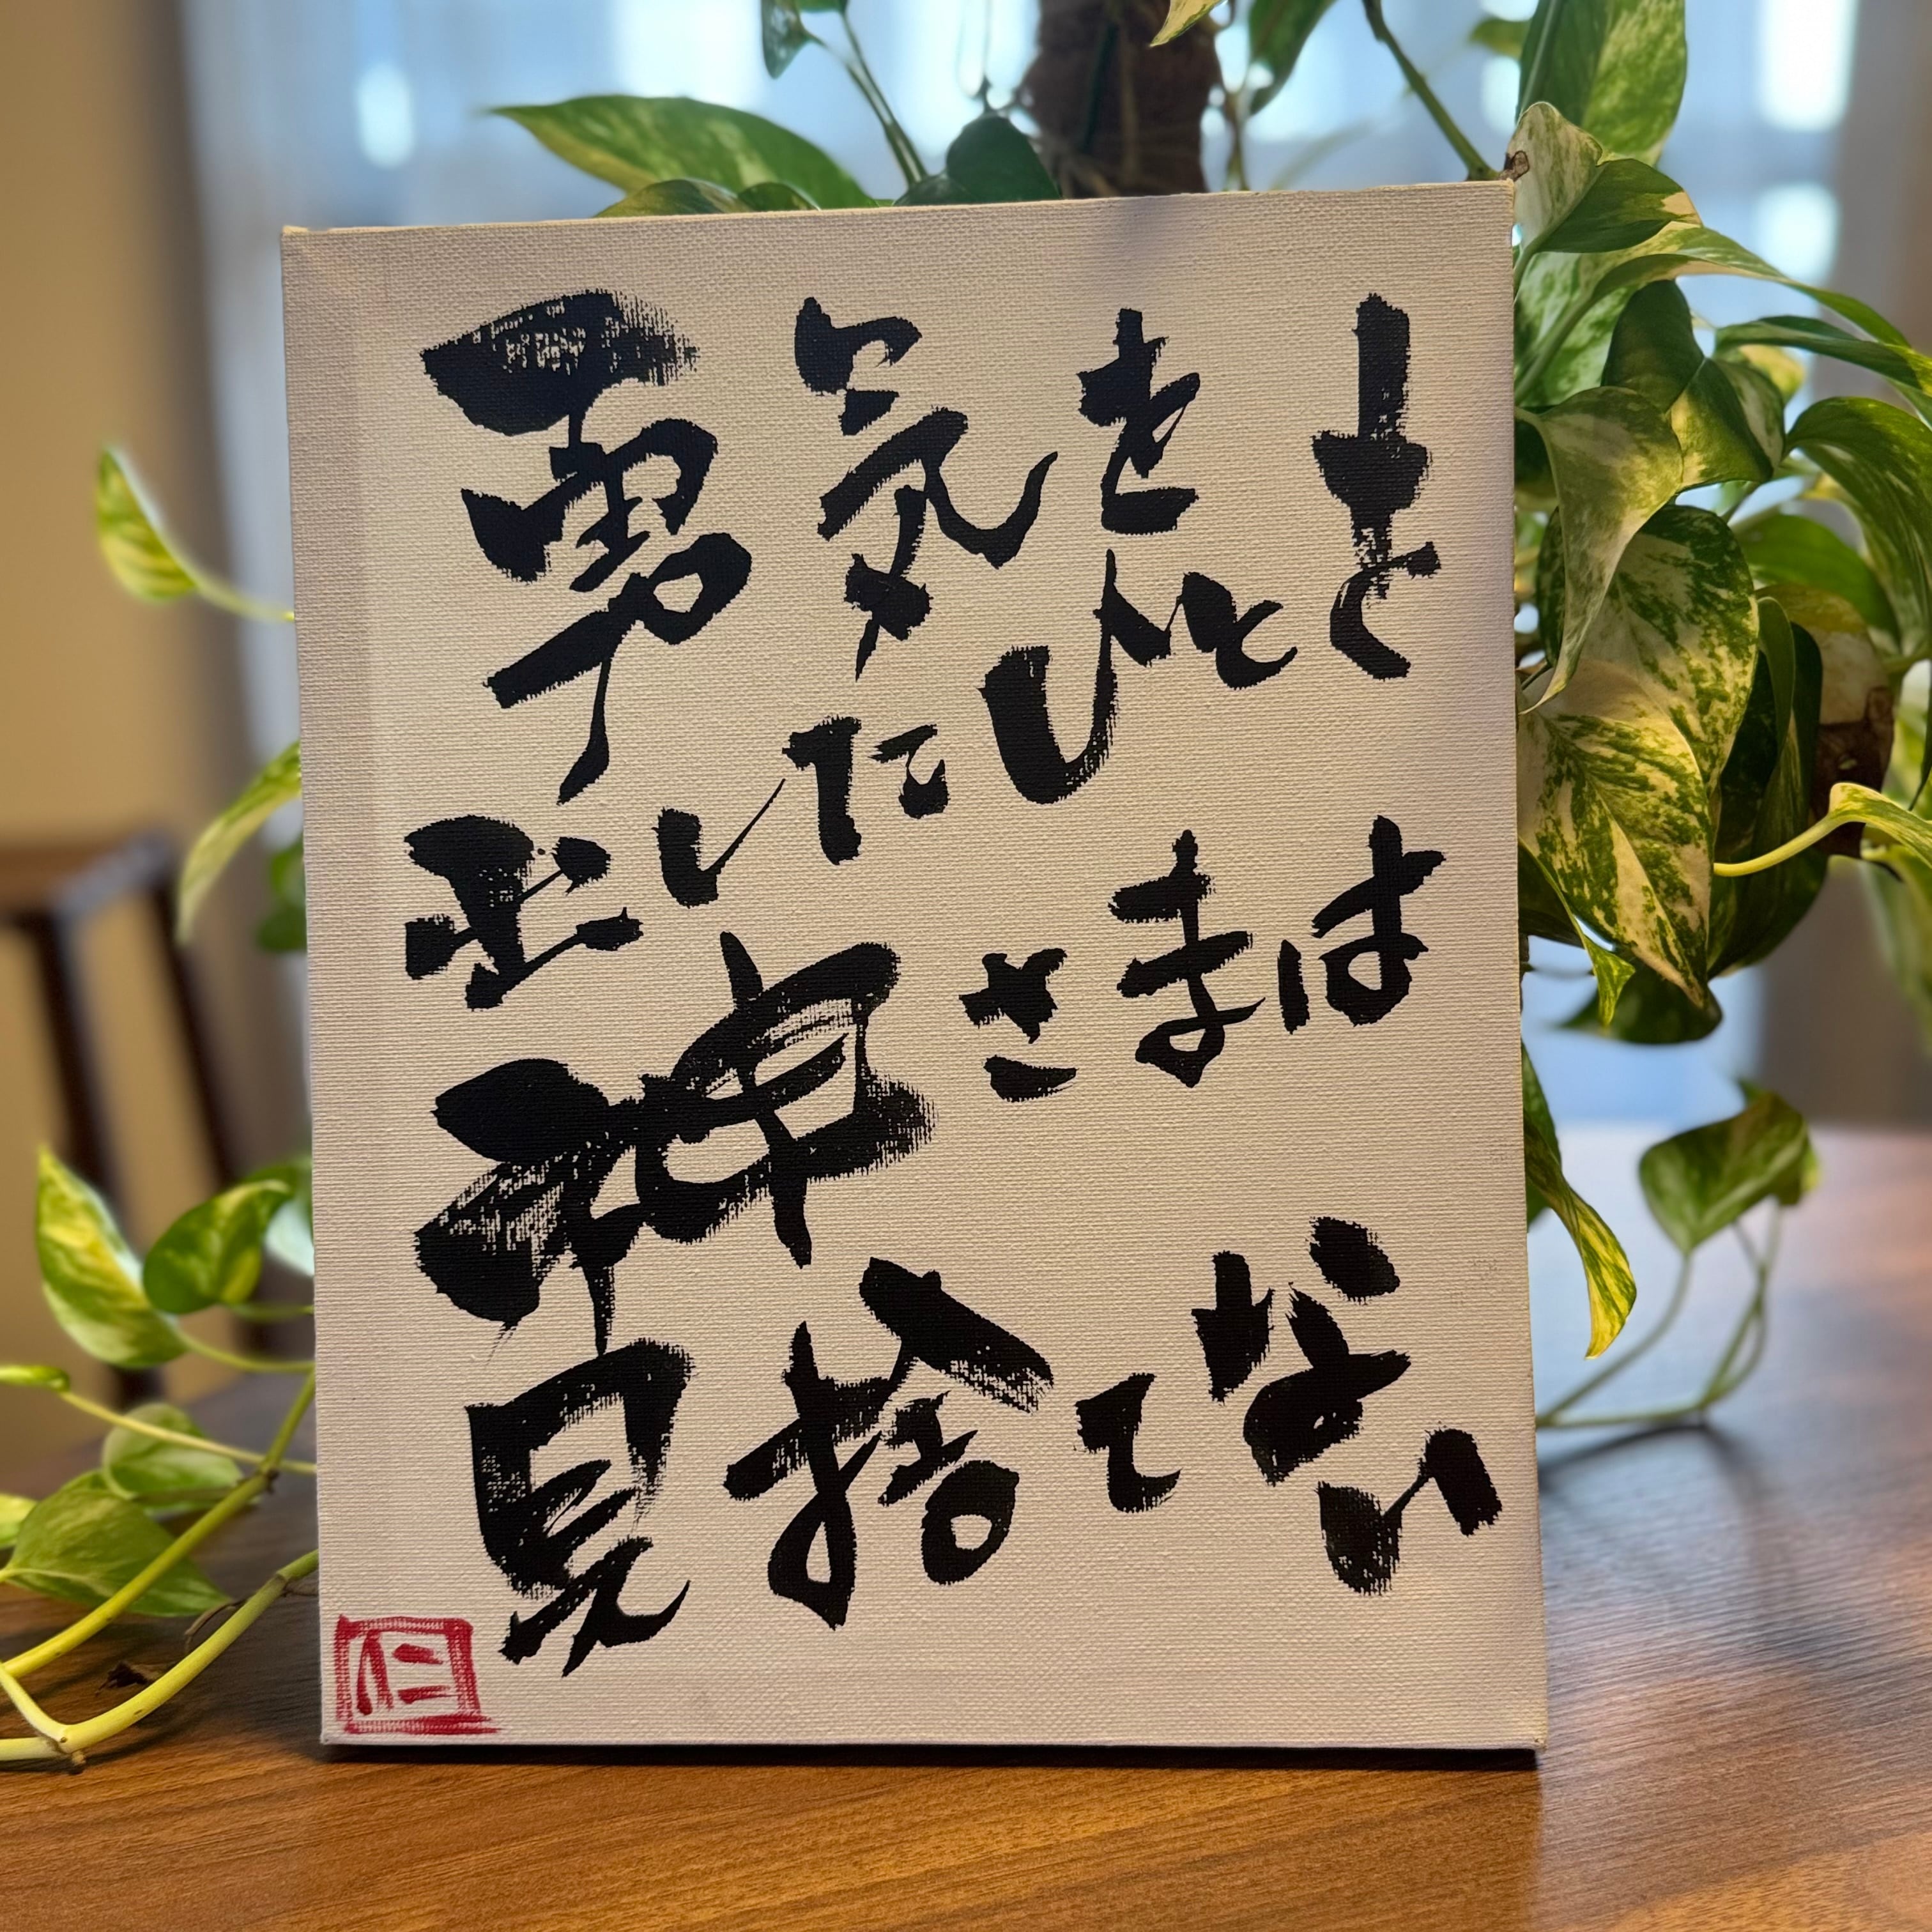 勇気を
出したひとを
神さまは
見捨てない
仁